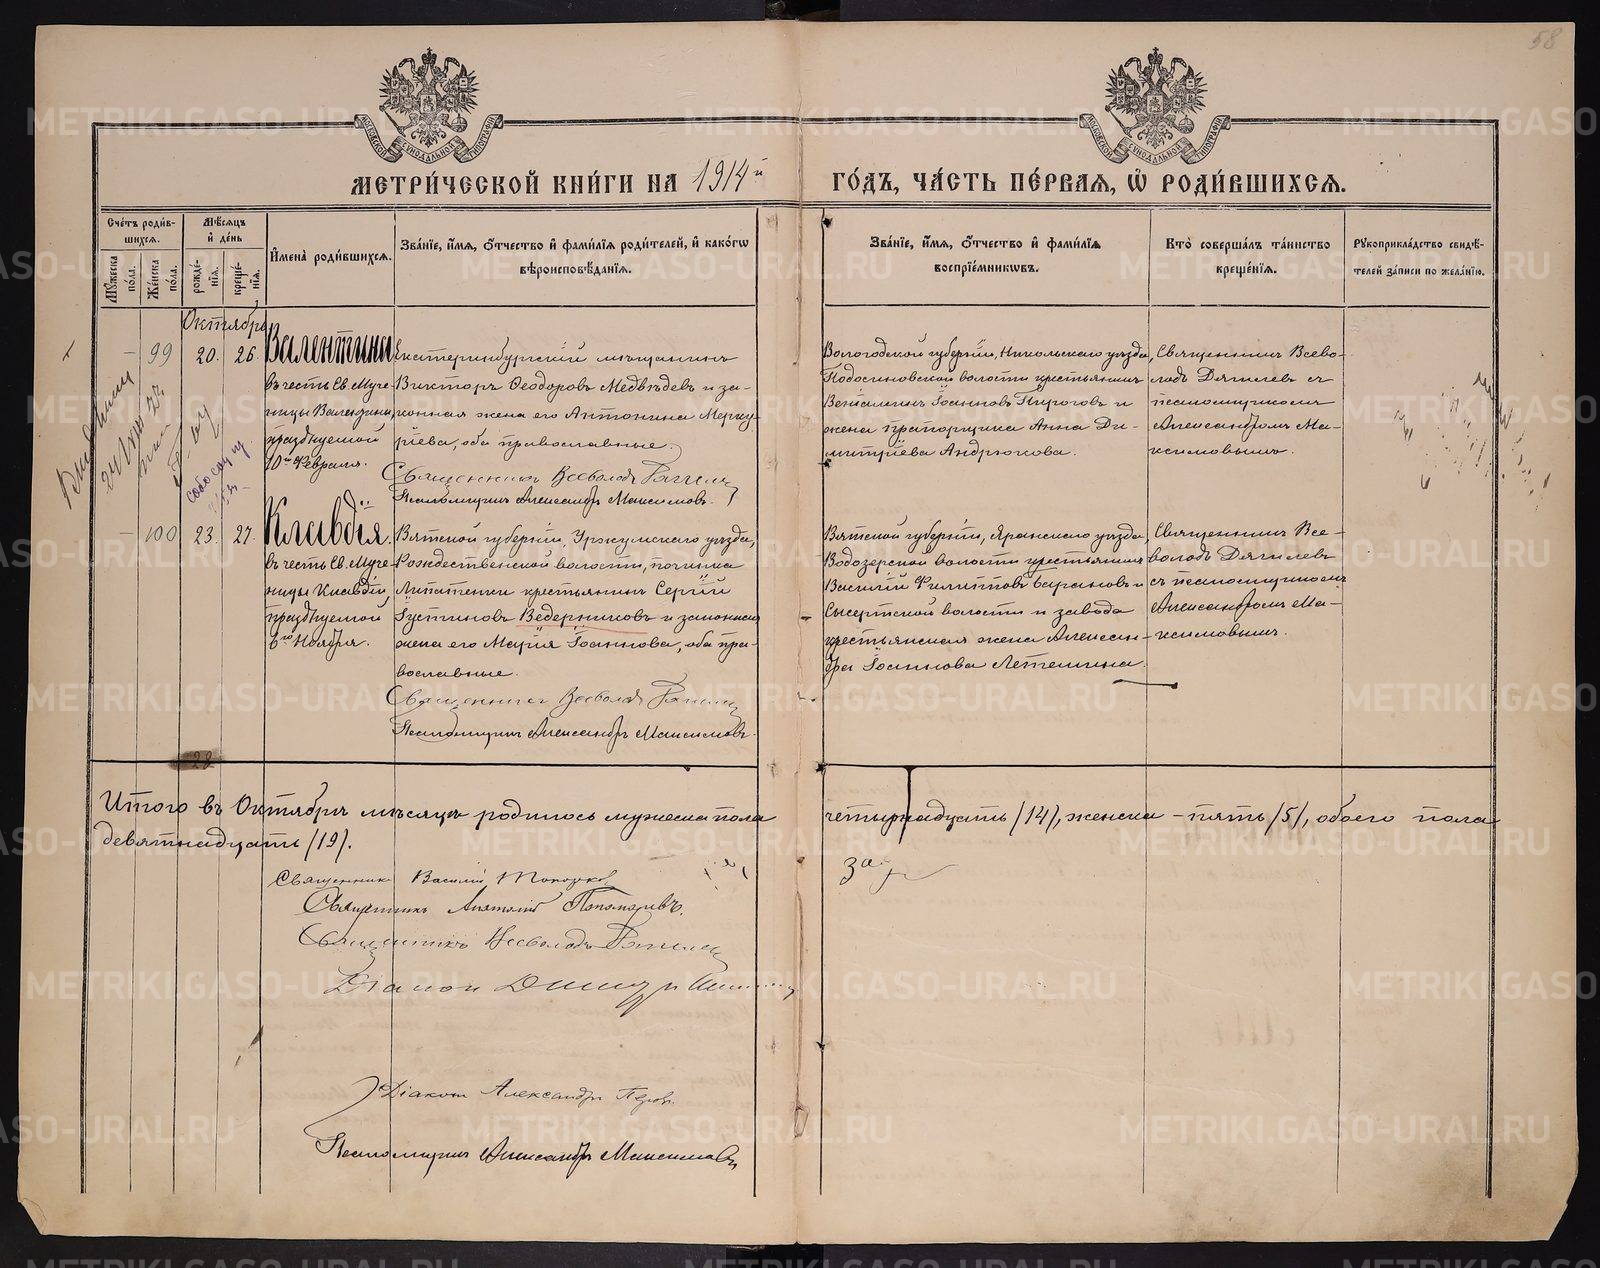 58
МЕТРИ́ЧЕСКОЙ КНИ́ГИ НА 1914й ГО́ДЪ, ЧА́СТЬ ПЕ́РВАЯ, Ѡ РОДИ́ВШИХСЯ.
Сче́тъ роди́в-
шихся.
Му́жеска по́ла.
Же́нска по́ла.
Мѣ́сяцъ
и҆ де́нь
рожде́-
нїя.
креще́-
нїя.
И҆мена̀ роди́вшихся.
Зва́нїе, и҆́мя, ѻ҆́тчество и҆ фами́лїя роди́телей, и҆ како́гѡ
вѣроисповѣ́данїя.
Зва́нїе, и҆́мя, ѻ҆́тчество и҆ фами́лїя
воспрїе́мникѡвъ.
Кто̀ соверша́лъ та́инство
креще́нїя.
Рукоприкла́дство свидѣ́-
телей за́писи по жела́нїю.
Октябрь
99 20. 26.
Валентина
въ честь Св. Муче-
ницы Валентины,
празднуемой
10го Февраля.
Екатеринбургскій мѣщанинъ
Викторъ Ѳеодоровъ Медвѣдевъ и за-
конная жена его Антонина Мерку-
ріева, оба православные.
Священникъ Всеволодъ
Псаломщикъ Александръ Максимовъ.
Вологодской губерніи, Никольскаго уѣзда,
Подосиновской волости крестьянинъ
Веніаминъ Іоанновъ Пироговъ и
жена прапорщика Анна Ди-
митріева Андрюкова.
Священникъ Всево-
лодъ Дягилевъ съ
псаломщикомъ
Александромъ Ма-
ксимовымъ.
100 23. 27.
Клавдія.
въ честь Св. Муче-
ницы Клавдіи,
празднуемой
6го Ноября.
Вятской губерніи, Уржумскаго уѣзда,
Рождественской волости, починка
крестьянинъ Сергій
Іустиновъ Ведерниковъ и законная
жена его Марія Іоаннова, оба пра-
вославные.
Священникъ Всеволодъ
Псаломщикъ Александръ Максимовъ.
Вятской губерніи, Яранскаго уѣзда,
Водозерской волости крестьянинъ
Василій Филипповъ Барановъ и
Сысертской волости и завода
крестьянская жена Алексан-
дра Іоаннова Летемина.
Священникъ Все-
володъ Дягилевъ
съ псаломщикомъ
Александромъ Ма-
ксимовымъ.
Итого въ Октябрѣ мѣсяцѣ родилось мужеска пола четырнадцать /14/, женска – пять /5/, обоего пола
девятнадцать /19/.
Священникъ Василій
Священникъ Анатолій Пономаревъ.
Священникъ Всеволодъ
Діаконъ Димитрій
Діаконъ Александръ
Псаломщикъ Александръ Максимовъ
METRIKI.GASO-URAL.RU